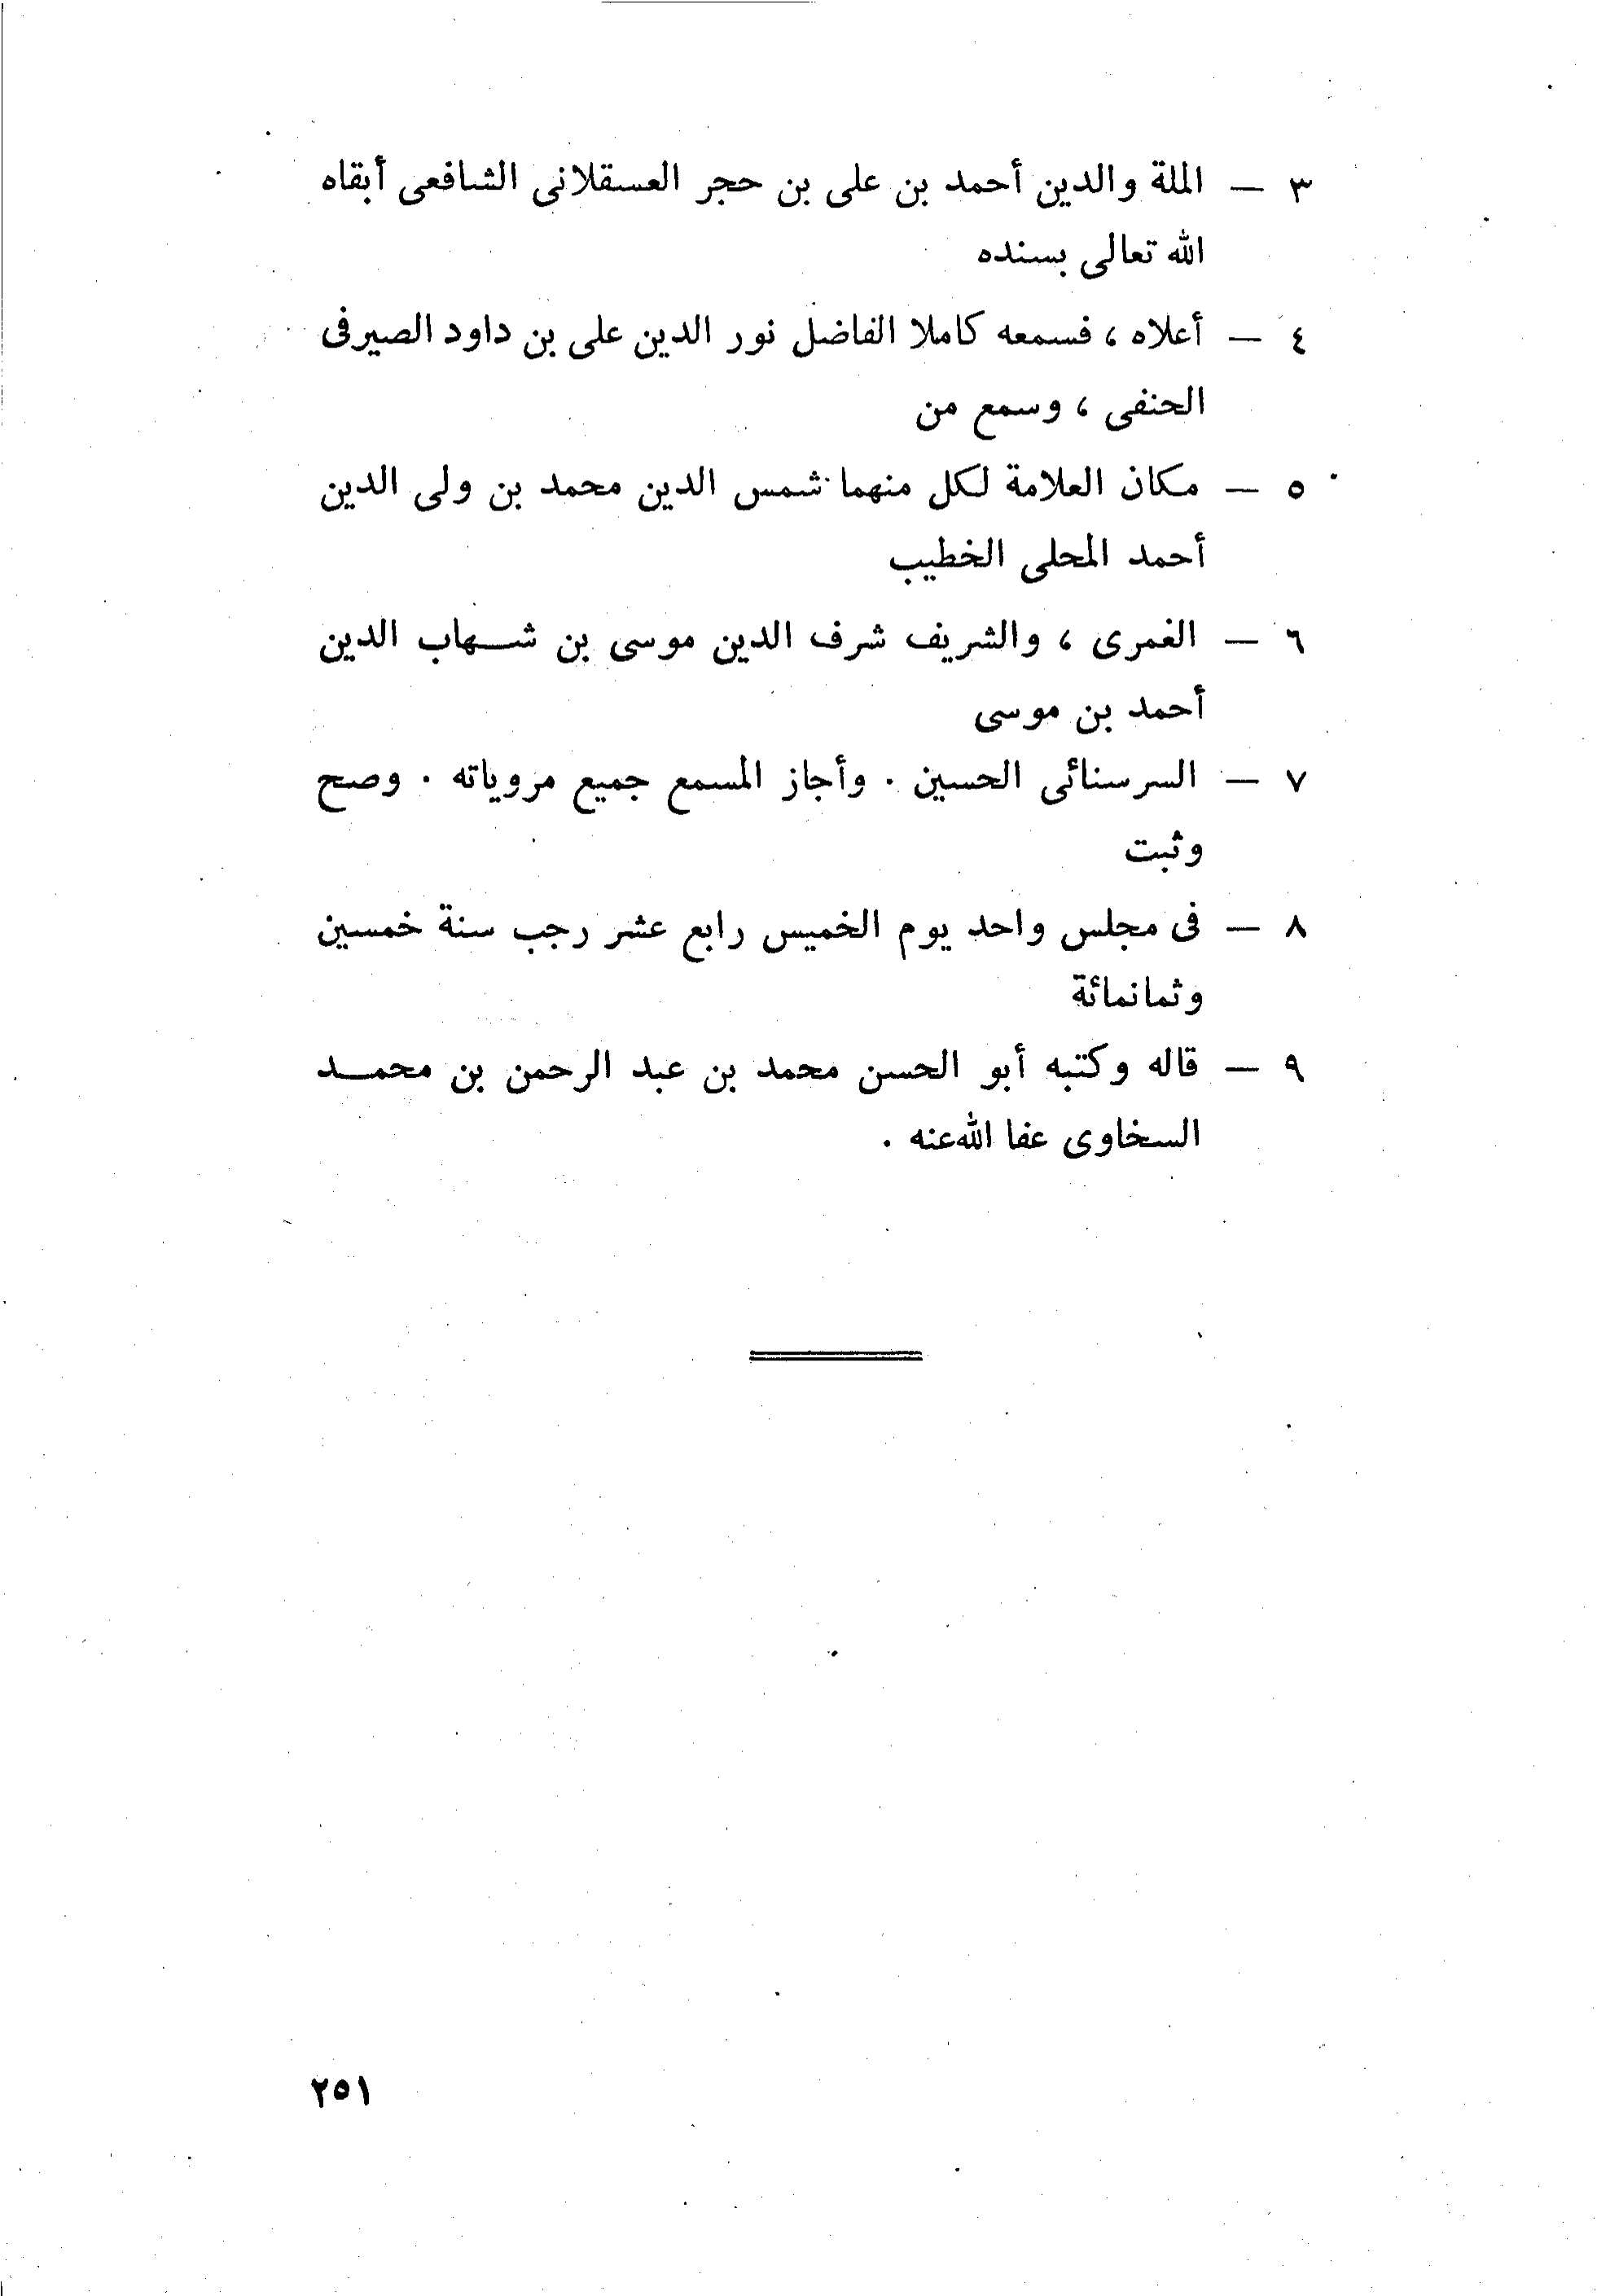 ٣ — الملة والدين أحمد بن على بن حجر العسقلانى الشافعى أبقاه
الله تعالى بسنده
٤ — أعلاه ، فسمعه كاملا الفاضل نور الدين على بن داود الصيرفى
الحنفى ، وسمع من
٥ — مكان العلامة لكل منهما شمس الدين محمد بن ولى الدين
أحمد المحلى الخطيب
٦ — الغمرى ، والشريف شرف الدين موسى بن شهاب الدين
أحمد بن موسى
٧ — السرسنائى الحسين . وأجاز المسمع جميع مروياته . وصح
وثبت
٨ — فى مجلس واحد يوم الخميس رابع عشر رجب سنة خمسين
وثمانمائة
٩ — قاله وكتبه أبو الحسن محمد بن عبد الرحمن بن محمد
السخاوى عفا الله عنه .
٢٥١